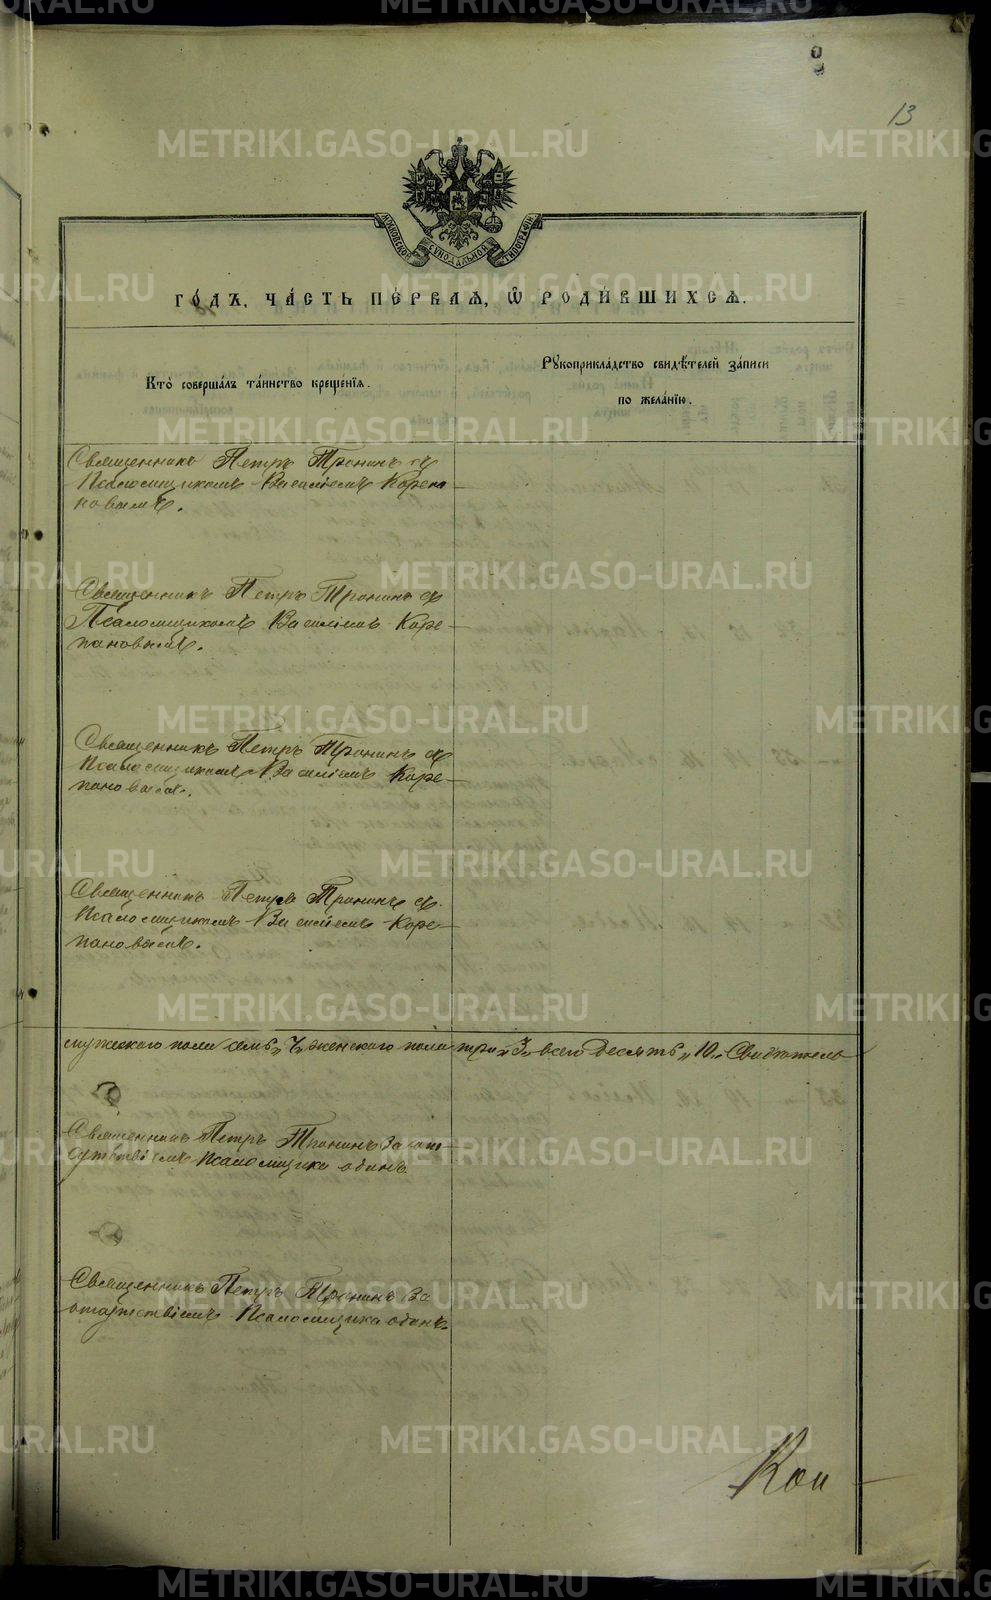 13
МОСКОВСКОЙ СѴНОДАЛЬНОЙ ТИПОГРАФІИ
ГО́ДЪ, ЧА́СТЬ ПЕ́РВАѦ, Ѽ РОДИ́ВШИХСѦ.
Кто̀ соверша́лъ та́инство креще́нїѧ.
Рꙋкоприкла́дство свидѣ́телей за́писи
по жела́нїю.
Священникъ Петръ Тронинъ съ
Псаломщикомъ Василіемъ Корепа-
новымъ.
Священникъ Петръ Тронинъ съ
Псаломщикомъ Василіемъ Коре-
пановымъ.
Священникъ Петръ Тронинъ съ
Псаломщикомъ Василіемъ Коре-
пановымъ.
Священникъ Петръ Тронинъ съ
Псаломщикомъ Василіемъ Коре-
пановымъ.
мужескаго пола семь „7„ женскаго пола три „3„ всего десять „10„ Свидѣтель
Священникъ Петръ Тронинъ за от-
сутствіемъ псаломщика одинъ
Священникъ Петръ Тронинъ за
отсутствіемъ Псаломщика одинъ.
Кон-
METRIKI.GASO-URAL.RU